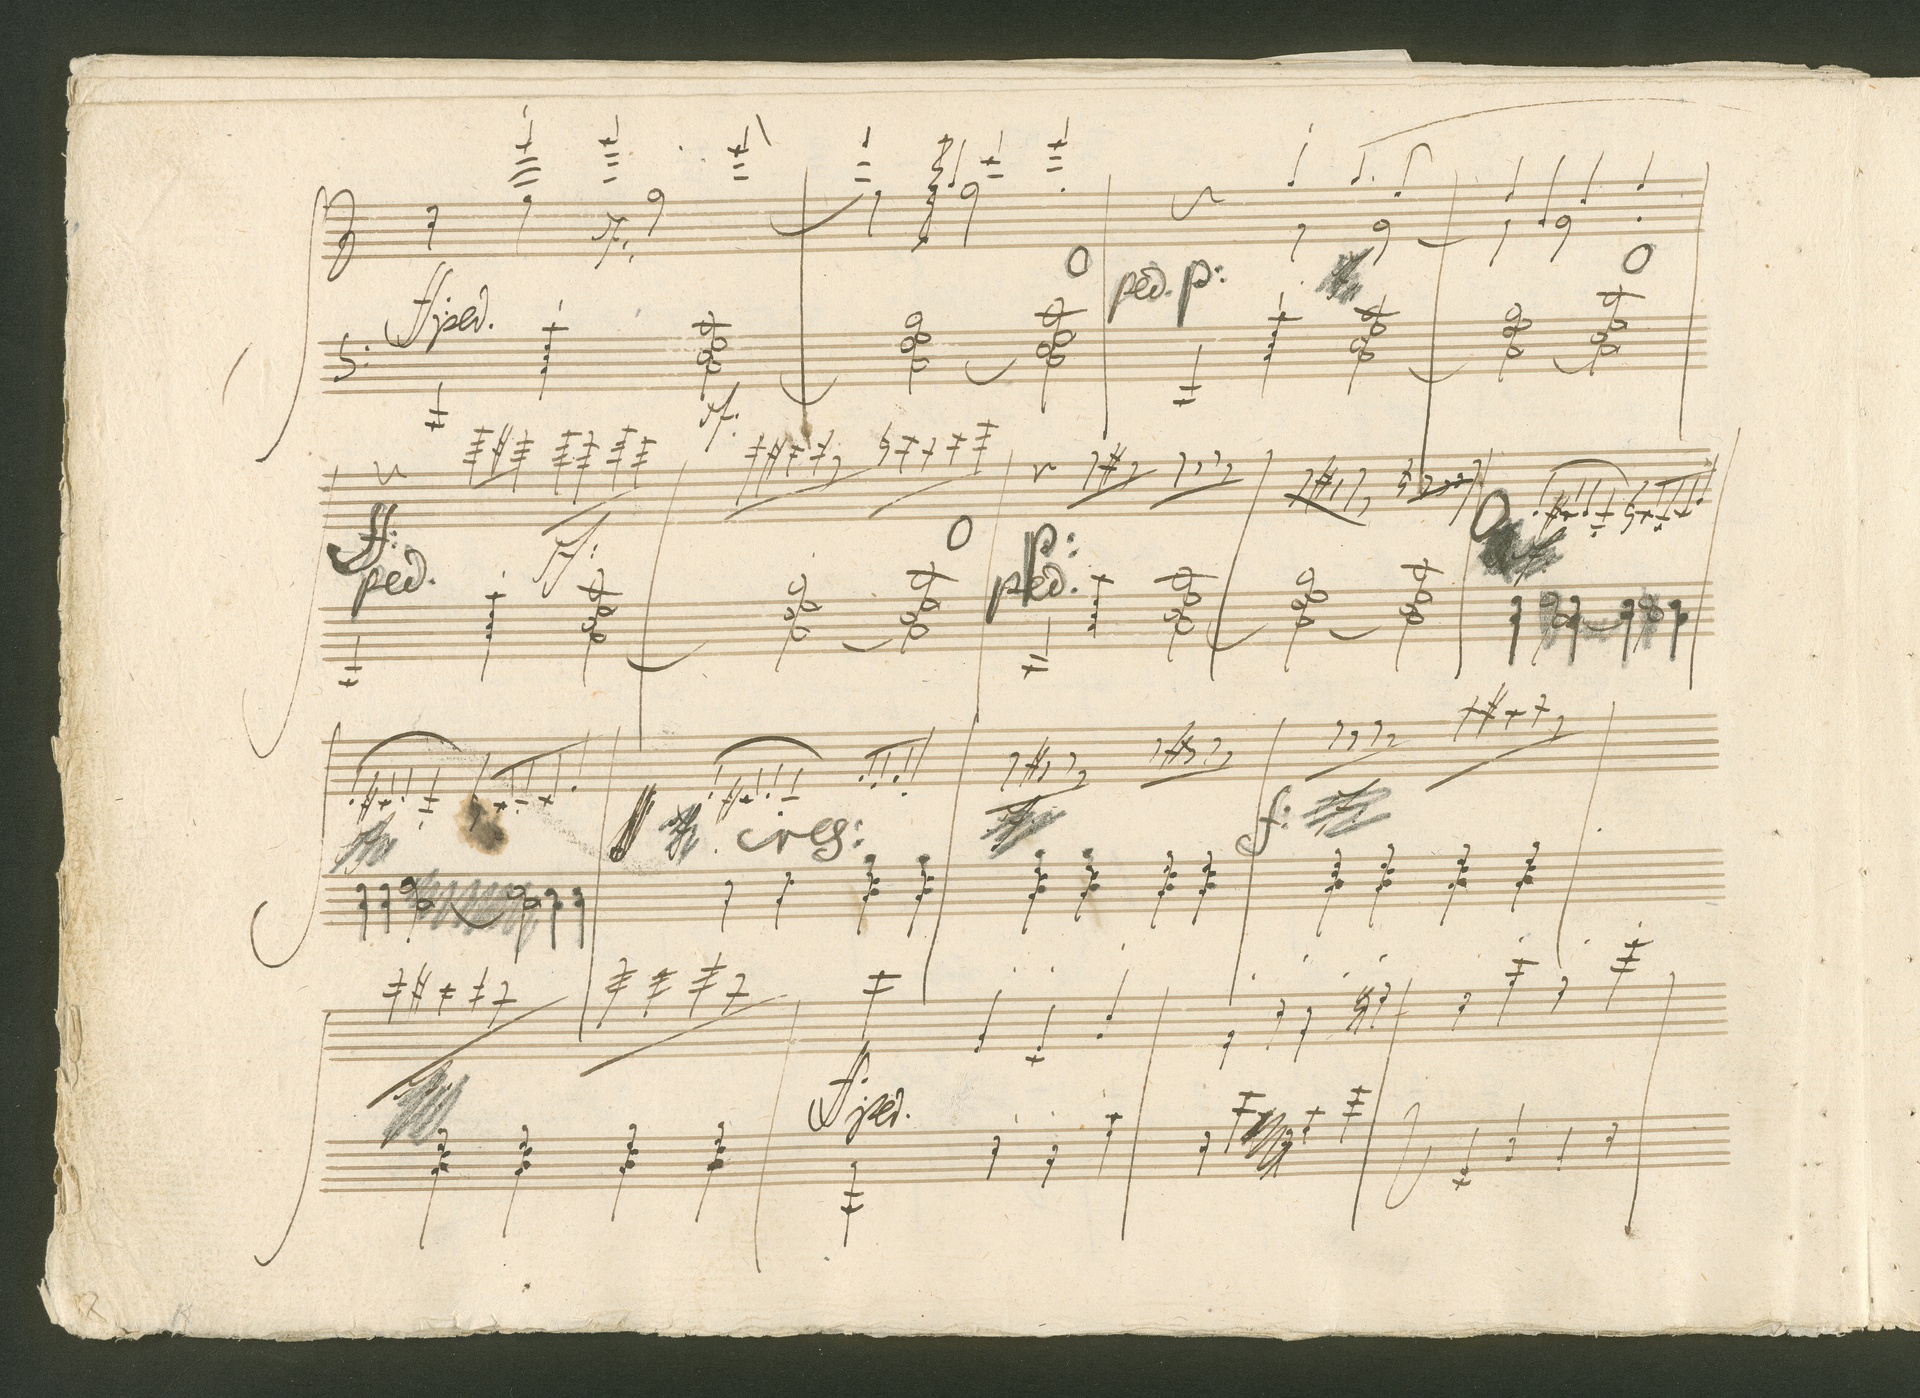 ff: ped.
ped. p:
sf.
ff: sf:
ped.
p:
ped.
cres:
f:
ff: ped.